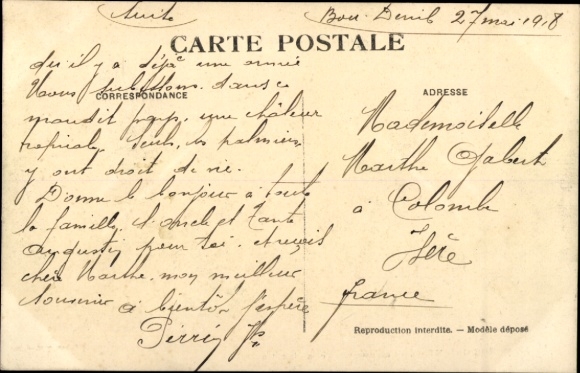 Suite
Bou-Denib 27 mai 1918
CARTE POSTALE
CORRESPONDANCE
ADRESSE
qu'il y a déjà une année
Nous subissons dans ce
maudit pays, une chaleur
tropicale. Seuls, les palmiers
y ont droit de vie.
Donne le bonjour à toute
la famille, l'oncle et Tante
Augustin pour toi. et reçois
chère Marthe, mon meilleur
souvenir à bientôt j'espère
Perrin
Mademoiselle
Marthe
à Colombe
Isère
france
Reproduction interdite. — Modèle déposé